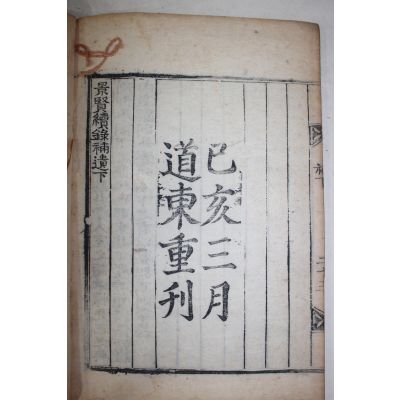 己亥三月
道東重刊
景賢續錄補遺下